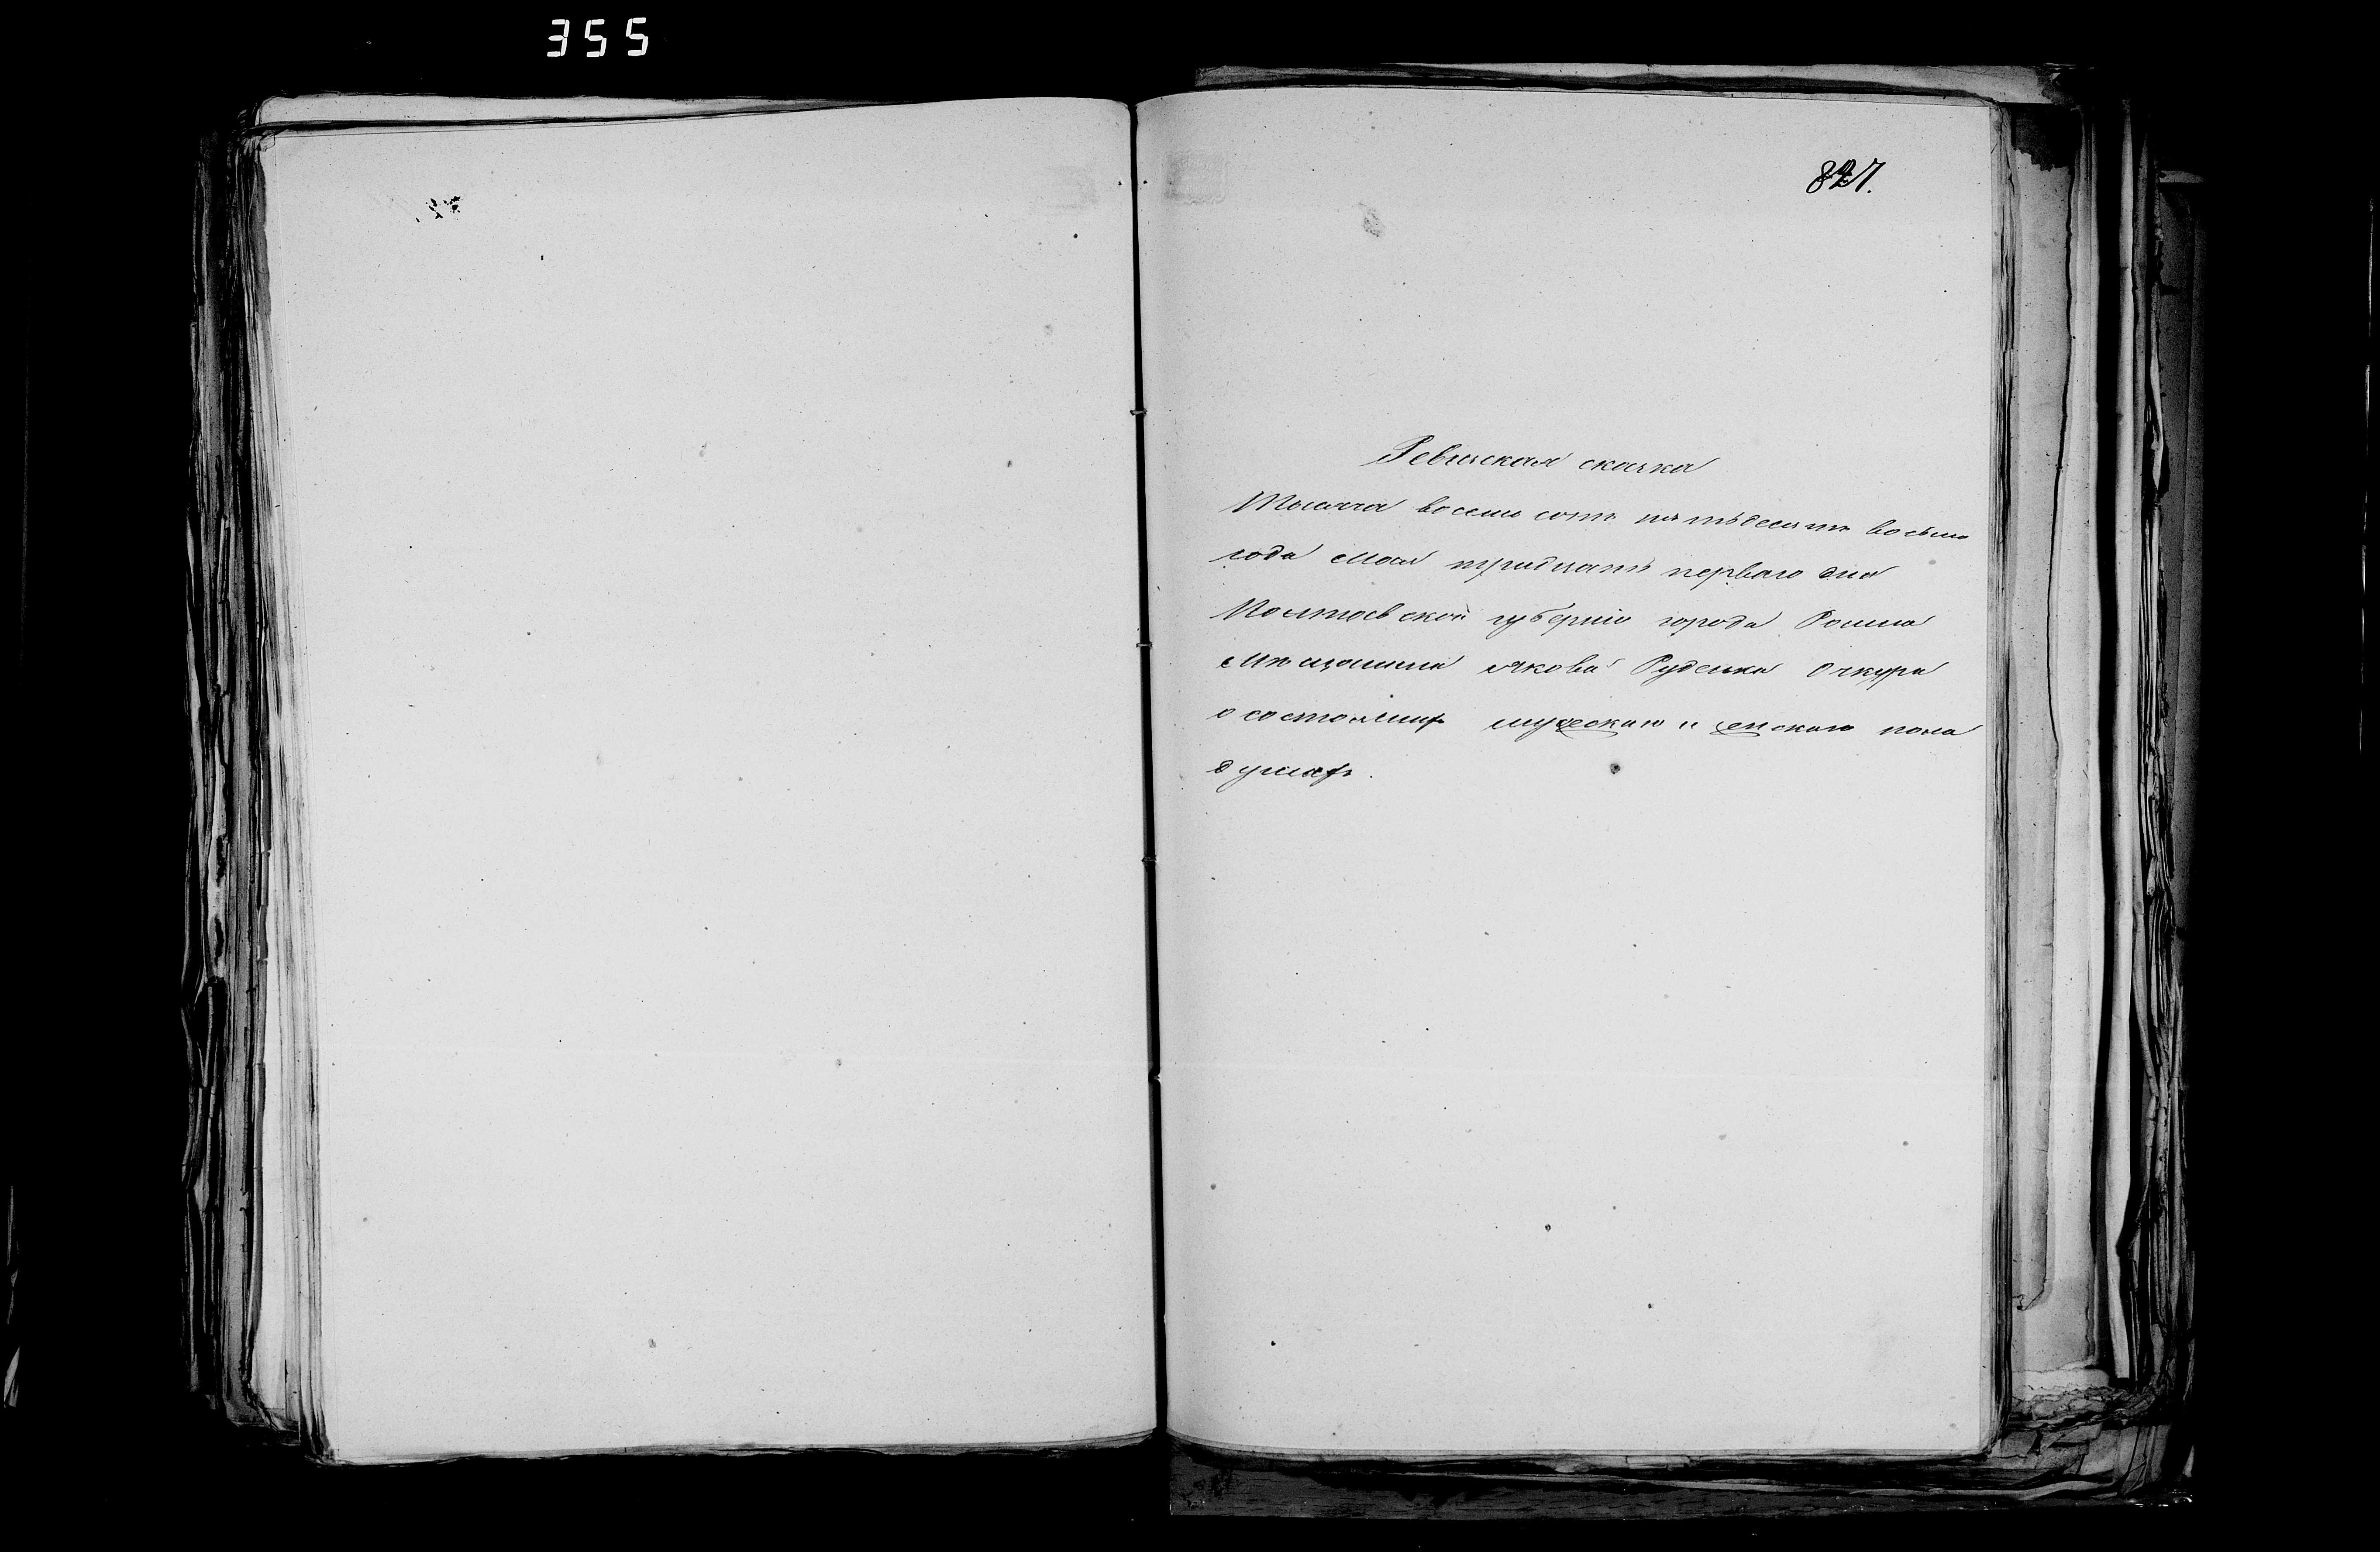 355
827.
Ревиская сказка
Тысяча восемь сотъ пятьдесятъ восьмо
года Мая тридцать перваго дня
Полтавской губерніи города Ромна
Мѣщанина Якова Руденка Очкура
о состоящихъ мужескаго и женскаго пола
душахъ.